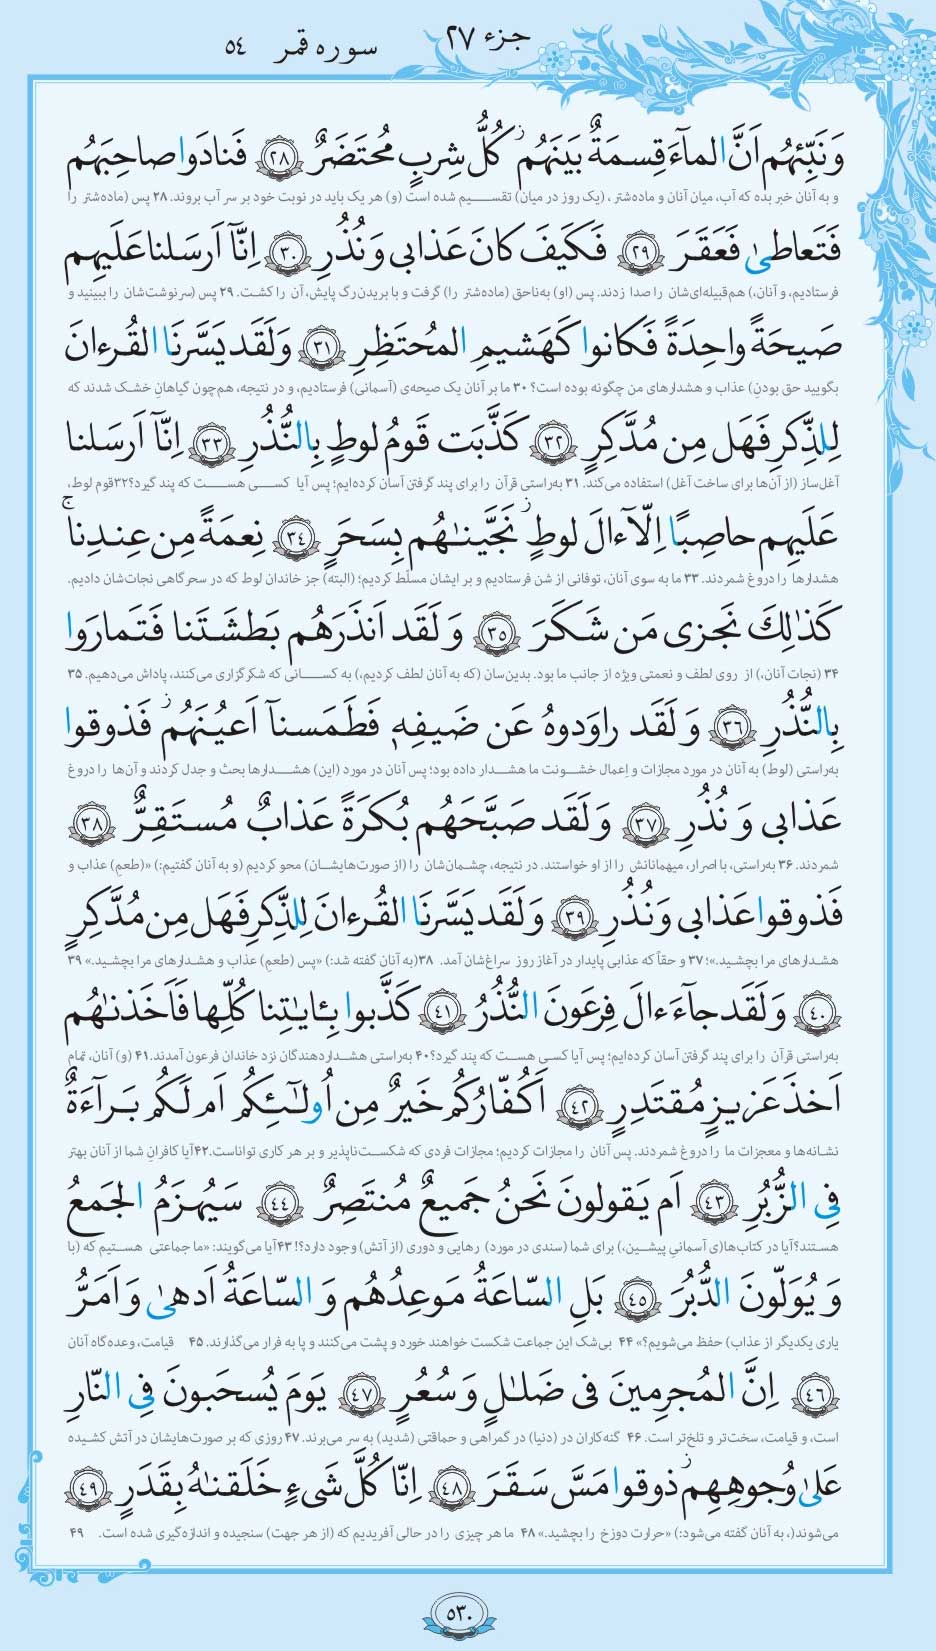 جزء ۲۷ سوره قمر ٥٤
وَ نَبِّئهُم اَنَّ الماۤءَ قِسمَةٌ بَينَهُم ۖ كُلُّ شِربٍ مُحتَضَرٌ ﴿٢٨﴾ فَنادَوا صاحِبَهُم
و به آنان خبر بده که آب، میان آنان و ماده‌شتر ، (یک روز در میان) تقسیم شده است (و) هر یک باید در نوبت خود بر سر آب بروند. ۲۸ پس (ماده‌شتر را
فَتَعاطىٰ فَعَقَرَ ﴿٢٩﴾ فَكَيفَ كانَ عَذابى وَ نُذُرِ ﴿٣٠﴾ اِنّاۤ اَرسَلنا عَلَيهِم
فرستادیم، و آنان،) هم‌قبیله‌ای‌شان را صدا زدند. پس (او) به‌ناحق (ماده‌شتر را) گرفت و با بریدن رگ پایش، آن را کشت. ۲۹ پس (سرنوشت‌شان را ببینید و
صَيحَةً واحِدَةً فَكانوا كَهَشيمِ المُحتَظِرِ ﴿٣١﴾ وَ لَقَد يَسَّرنَا القُرءانَ
بگویید حق بودنِ) عذاب و هشدارهای من چگونه بوده است؟ ۳۰ ما بر آنان یک صیحه‌ی (آسمانی) فرستادیم، و در نتیجه، هم‌چون گیاهانِ خشک شدند که
لِلذِّكرِ فَهَل مِن مُدَّكِرٍ ﴿٣٢﴾ كَذَّبَت قَومُ لوطٍ بِالنُّذُرِ ﴿٣٣﴾ اِنّاۤ اَرسَلنا
آغل‌ساز (از آن‌ها برای ساخت آغل) استفاده می‌کند. ۳۱ به‌راستی قرآن را برای پند گرفتن آسان کرده‌ایم؛ پس آیا کسی هست که پند گیرد؟۳۲قوم لوط،
عَلَيهِم حاصِبًا اِلّاۤ ءالَ لوطٍ ۖ نَجَّينٰهُم بِسَحَرٍ ﴿٣٤﴾ نِعمَةً مِن عِندِنا ۚ
هشدارها را دروغ شمردند. ۳۳ ما به سوی آنان، توفانی از شن فرستادیم و بر ایشان مسلّط کردیم؛ (البته) جز خاندان لوط که در سحرگاهی نجات‌شان دادیم.
كَذٰلِكَ نَجزى مَن شَكَرَ ﴿٣٥﴾ وَ لَقَد اَنذَرَهُم بَطشَتَنا فَتَمارَوا
۳۴ (نجات آنان،) از روی لطف و نعمتی ویژه از جانب ما بود. بدین‌سان (که به آنان لطف کردیم،) به کسانی که شکرگزاری می‌کنند، پاداش می‌دهیم. ۳۵
بِالنُّذُرِ ﴿٣٦﴾ وَ لَقَد راوَدوهُ عَن ضَيفِهٖ فَطَمَسناۤ اَعيُنَهُم ۖ فَذوقوا
به‌راستی (لوط) به آنان در مورد مجازات و اِعمال خشونت ما هشدار داده بود؛ پس آنان در مورد (این) هشدارها بحث و جدل کردند و آن‌ها را دروغ
عَذابى وَ نُذُرِ ﴿٣٧﴾ وَ لَقَد صَبَّحَهُم بُكرَةً عَذابٌ مُستَقِرٌّ ﴿٣٨﴾
شمردند. ۳۶ به‌راستی، با اصرار، میهمانانش را از او خواستند. در نتیجه، چشمان‌شان را (از صورت‌هایشان) محو کردیم (و به آنان گفتیم:) «(طعم) عذاب و
فَذوقوا عَذابى وَ نُذُرِ ﴿٣٩﴾ وَ لَقَد يَسَّرنَا القُرءانَ لِلذِّكرِ فَهَل مِن مُدَّكِرٍ
هشدارهای مرا بچشید.»؛ ۳۷ و حقاً که عذابی پایدار در آغاز روز سراغ‌شان آمد. ۳۸(به آنان گفته شد:) «پس (طعم) عذاب و هشدارهای مرا بچشید.» ۳۹
﴿٤٠﴾ وَ لَقَد جاۤءَ ءالَ فِرعَونَ النُّذُرُ ﴿٤١﴾ كَذَّبوا بِـٔايٰتِنا كُلِّها فَاَخَذنٰهُم
به‌راستی قرآن را برای پند گرفتن آسان کرده‌ایم؛ پس آیا کسی هست که پند گیرد؟۴۰ به‌راستی هشداردهندگان نزد خاندان فرعون آمدند.۴۱ (و) آنان، تمام
اَخذَ عَزيزٍ مُقتَدِرٍ ﴿٤٢﴾ اَكُفّارُكُم خَيرٌ مِن اُولٰۤئِكُم اَم لَكُم بَراۤءَةٌ
نشانه‌ها و معجزات ما را دروغ شمردند. پس آنان را مجازات کردیم؛ مجازات فردی که شکست‌ناپذیر و بر هر کاری تواناست.۴۲آیا کافرانِ شما از آنان بهتر
فِى الزُّبُرِ ﴿٤٣﴾ اَم يَقولونَ نَحنُ جَميعٌ مُنتَصِرٌ ﴿٤٤﴾ سَيُهزَمُ الجَمعُ
هستند؟آیا در کتاب‌ها(ی آسمانیِ پیشین،) برای شما (سندی در مورد) رهایی و دوری (از آتش) وجود دارد؟! ۴۳آیا می‌گویند: «ما جماعتی هستیم که (با
وَ يُوَلّونَ الدُّبُرَ ﴿٤٥﴾ بَلِ السّاعَةُ مَوعِدُهُم وَ السّاعَةُ اَدهىٰ وَ اَمَرُّ
یاری یکدیگر از عذاب) حفظ می‌شویم؟» ۴۴ بی‌شک این جماعت شکست خواهند خورد و پشت می‌کنند و پا به فرار می‌گذارند. ۴۵ قیامت، وعده‌گاه آنان
﴿٤٦﴾ اِنَّ المُجرِمينَ فى ضَلٰلٍ وَ سُعُرٍ ﴿٤٧﴾ يَومَ يُسحَبونَ فِى النّارِ
است، و قیامت، سخت‌تر و تلخ‌تر است. ۴۶ گنه‌کاران در (دنیا) در گمراهی و حماقتی (شدید) به سر می‌برند. ۴۷ روزی که بر صورت‌هایشان در آتش کشیده
عَلىٰ وُجوهِهِم ۖ ذوقوا مَسَّ سَقَرَ ﴿٤٨﴾ اِنّا كُلَّ شَىءٍ خَلَقنٰهُ بِقَدَرٍ ﴿٤٩﴾
می‌شوند(، به آنان گفته می‌شود:) «حرارت دوزخ را بچشید.» ۴۸ ما هر چیزی را در حالی آفریدیم که (از هر جهت) سنجیده و اندازه‌گیری شده است. ۴۹
٥٣٠